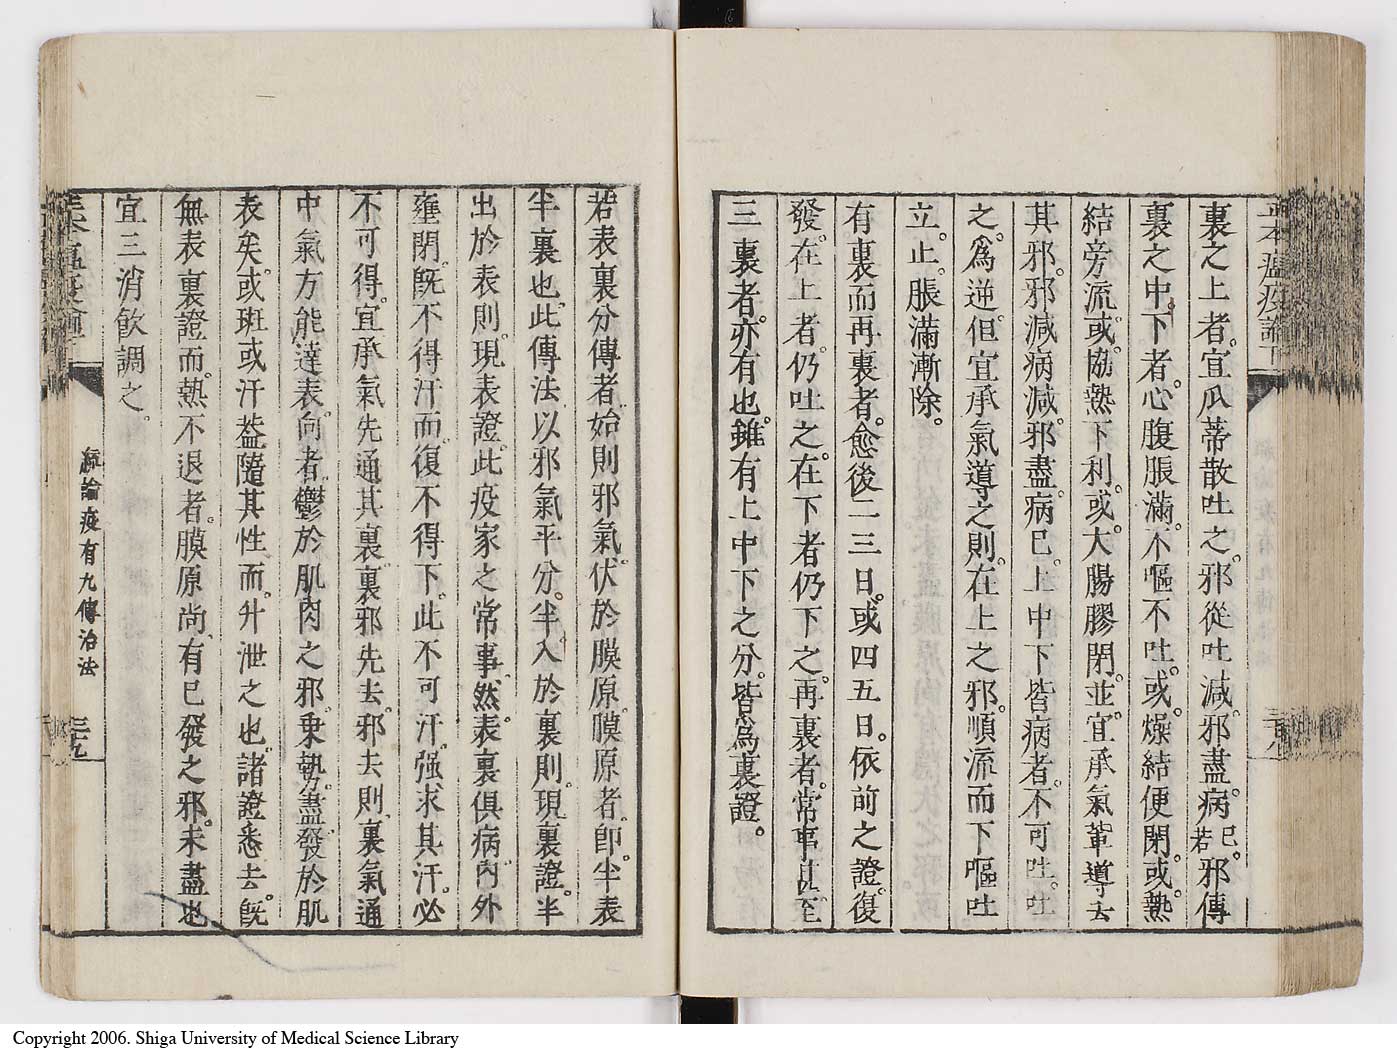 裏之上者。宜瓜蒂散吐之。邪從吐減。邪盡病已。若邪傳
裏之中。下者。心腹脹滿。不嘔不吐。或。燥結便閉。或。熱
結旁流。或。協熱下利。或。大腸膠閉。並。宜承氣軰導去
其邪。邪減病減。邪盡。病已。上中下皆病者。不可吐。吐
之。爲逆。但宜承氣導之則。在上之邪。順流而下嘔吐
立。止。脹滿漸除。
有裏而再裏者。愈後二三日。或四五日。依前之證。復
發。在上者。仍吐之。在下者仍下之。再裏者。常事甚至
三裏者。亦有也。雖有上中下之分。皆爲裏證。
若表裏分傳者。始則邪氣。伏於膜原。膜原者。卽。半表
半裏也。此傳法。以邪氣平分。半入於裏則。現裏證。半
出於表則。現表證。此疫家之常事。然。表裏俱病。內外
壅閉。旣不得汗。而復不得下。此不可汗。强求其汗。必
不可得。宜承氣先通其裏。裏邪先去。邪去則。裏氣通
中氣方能達表。向者。鬱於肌肉之邪。乗勢。盡發於肌
表矣。或班或汗葢隨其性而。升泄之也。諸證悉去。旣
無表裏證而。熱不退者。膜原尚。有已發之邪。未盡也
宜三消飮調之。
瘟論疫有九傳治法
三十九